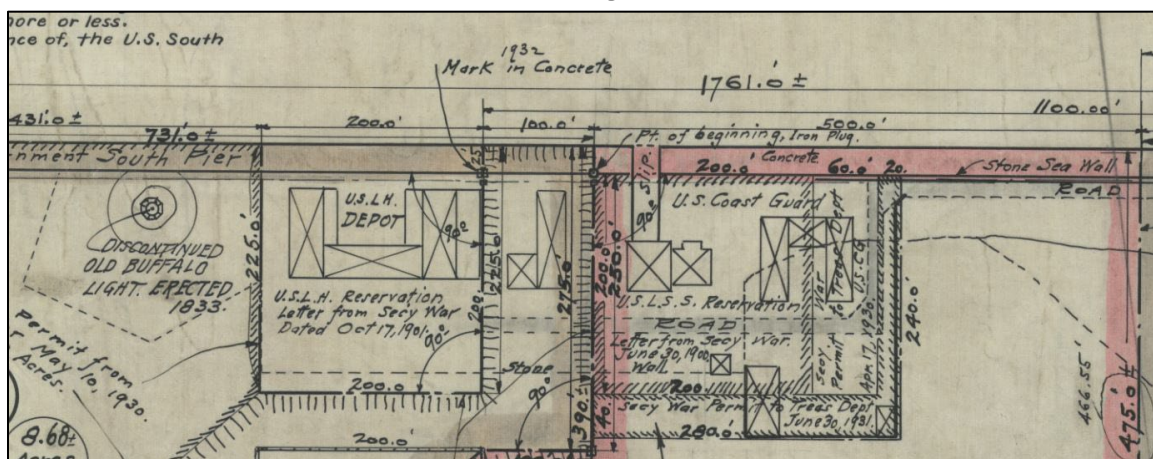 more or less.
nce of, the U.S. South
1932
Mark in Concrete
1761.0'±
1100.00'
431.0±
731.0±
200.0'
100.0'
500.0'
Pt. of beginning, Iron Plug.
nment South Pier
25'
SLIP.
200.0'
Concrete
60.0'
20.
Stone Sea Wall
ROAD
U.S.L.H.
DEPOT
90°
90°
U.S. Coast Guard
DISCONTINUED
OLD BUFFALO
LIGHT. ERECTED
1833.
225.0'
225.0'
275.0'
200.0'
250.0'
U.S.L.H. Reservation
Letter from Secy War
Dated Oct 17, 1901.
90°
200.
U.S.L.S.S. Reservation
ROAD
Letter from Secy War.
June 30, 1900
Wall
Secy War
Permit to Treas Dept
Apr. 17, 1930. U.S.C.G.
240.0'
Permit from
May 10, 1930.
Acres.
Stone
90°
200.0'
200
466.55'
475.0'±
390.'±
40.
Secy War Permit to Treas Dept
June 30, 1931.
280.0'
8.68±
Acres
200.0'